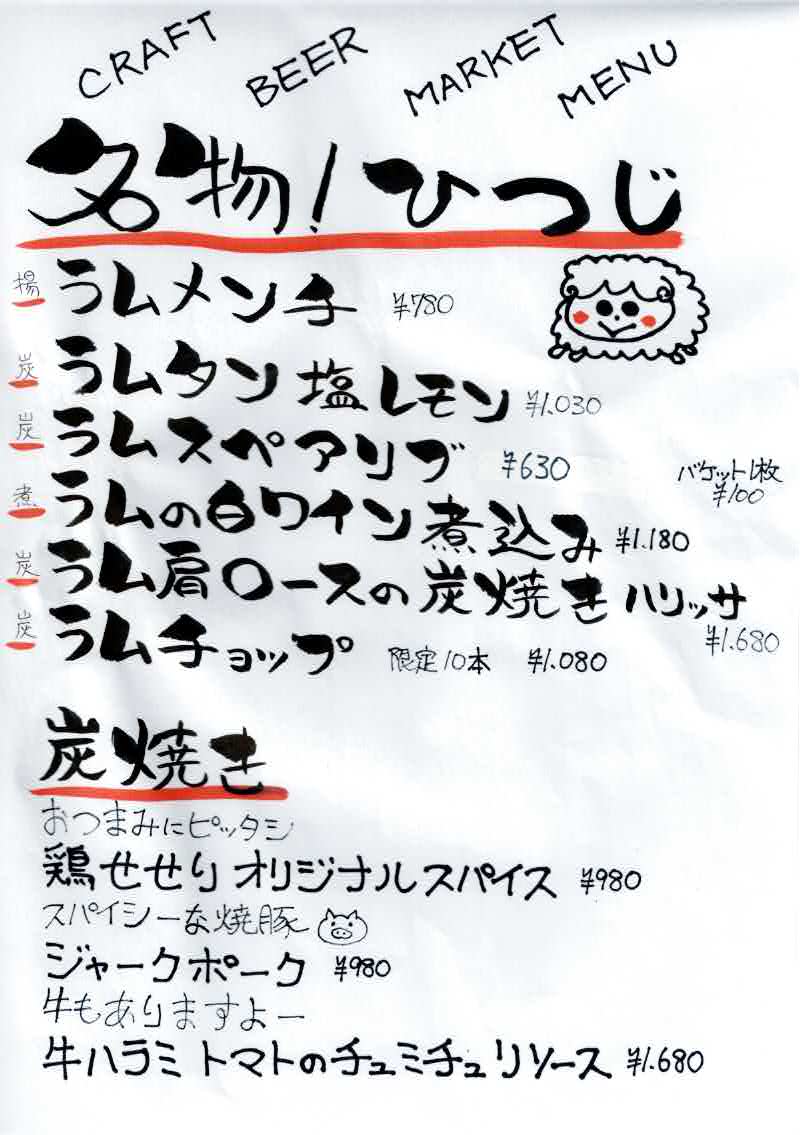 CRAFT BEER MARKET MENU
名物！ひつじ
揚 ラムメンチ ¥780
炭 ラムタン 塩レモン ¥1.030
炭 ラムスペアリブ ¥630
バケット1枚
¥100
煮 ラムの白ワイン煮込み ¥1.180
炭 ラム肩ロースの炭焼き ハリッサ
¥1.680
炭 ラムチョップ 限定10本 ¥1.080
炭焼き
おつまみにピッタシ
鶏せせり オリジナルスパイス ¥980
スパイシーな焼豚
ジャークポーク ¥980
牛もありますよー
牛ハラミ トマトのチュミチュリソース ¥1.680